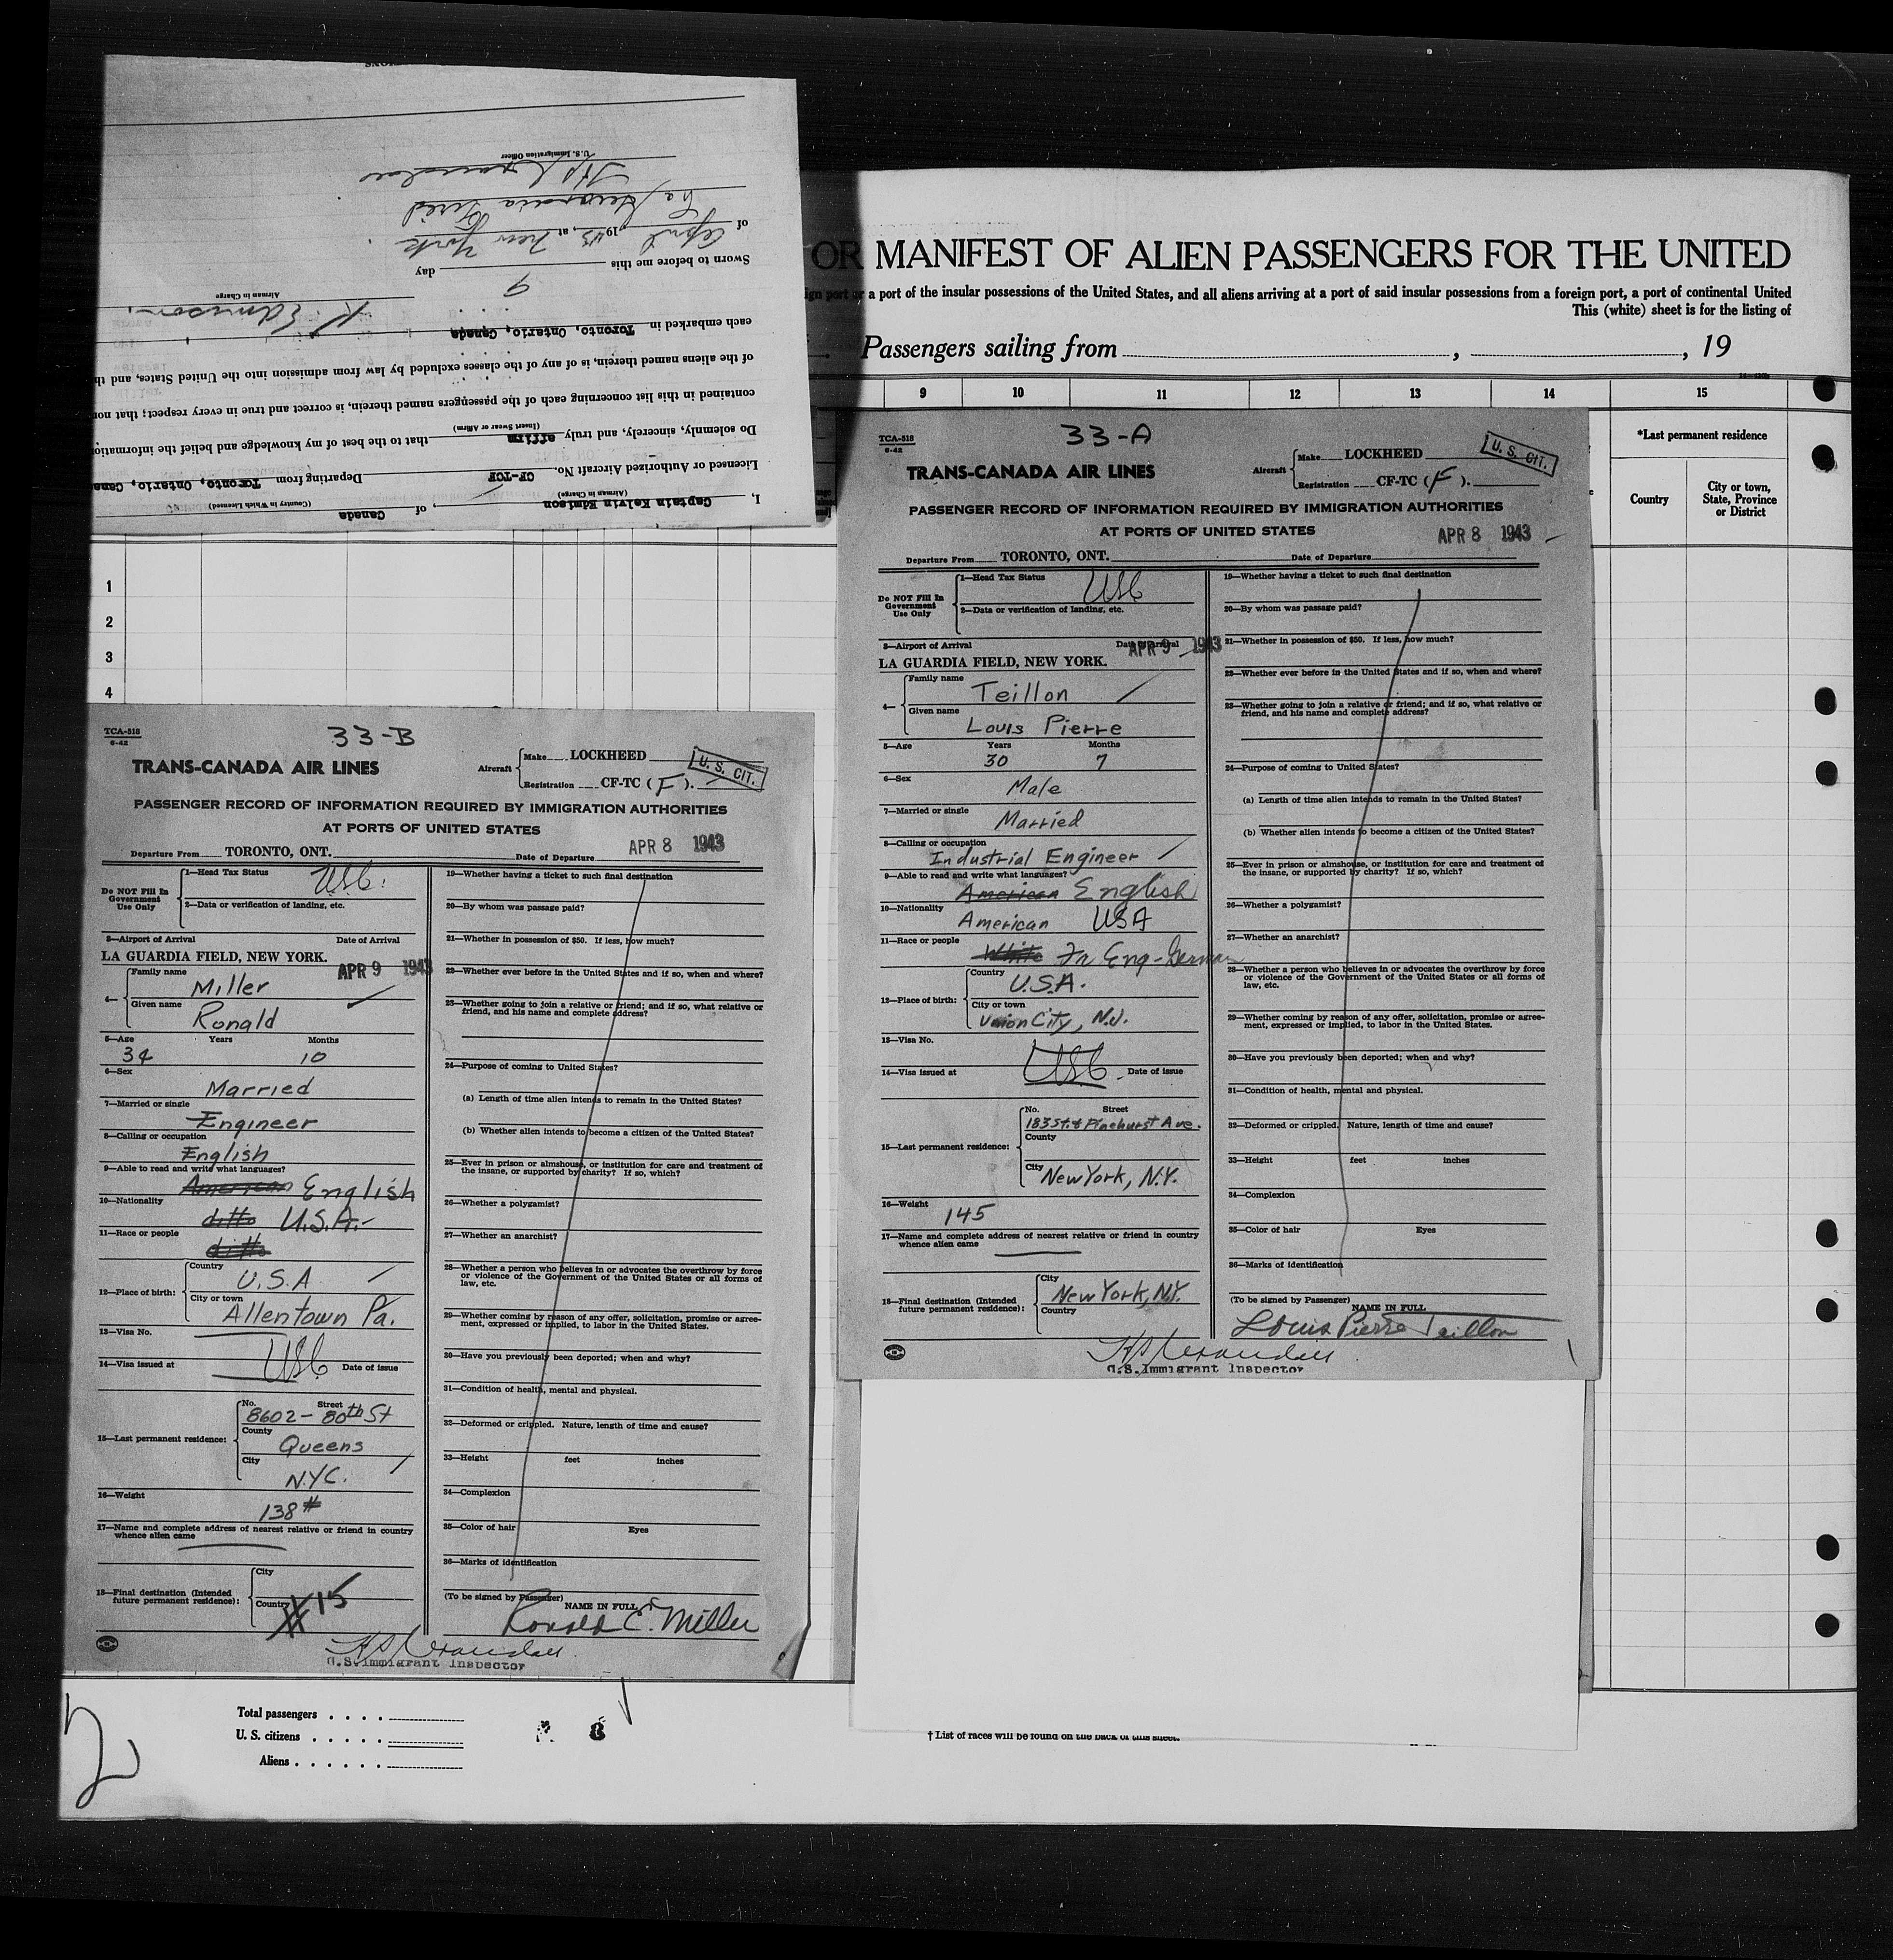 I, Captain Kelvin Edmison, of Canada
(Airman in Charge) (Country in Which Licensed)
Licensed or Authorized Aircraft No. CF-TCF Departing from Toronto, Ontario, Cana
Do solemnly, sincerely, and truly affirm that to the best of my knowledge and belief the information
(Insert Swear or Affirm)
contained in this list concerning each of the passengers named therein, is correct and true in every respect; that non
of the aliens named therein, is of any of the classes excluded by law from admission into the United States, and th
each embarked in Toronto, Ontario, Canada
K Edmison.
Airman in Charge
Sworn to before me this 9 day
of April, 1943, at New York
La Guardia Field
U. S. Immigration Officer
OR MANIFEST OF ALIEN PASSENGERS FOR THE UNITED
ign port or a port of the insular possessions of the United States, and all aliens arriving at a port of said insular possessions from a foreign port, a port of continental United
This (white) sheet is for the listing of
Passengers sailing from , , 19
9 10 11 12 13 14 15
*Last permanent residence
Country
City or town, State, Province or District
1
2
3
4
TCA-518
6-42
33-B
TRANS-CANADA AIR LINES
Aircraft Make LOCKHEED
Registration CF-TC (F).
U. S. CIT.
PASSENGER RECORD OF INFORMATION REQUIRED BY IMMIGRATION AUTHORITIES
AT PORTS OF UNITED STATES
APR 8 1943
Departure From TORONTO, ONT. Date of Departure
Do NOT Fill In Government Use Only
1—Head Tax Status USC.
2—Data or verification of landing, etc.
3—Airport of Arrival Date of Arrival
LA GUARDIA FIELD, NEW YORK. APR 9 1943
4— Family name Miller
Given name Ronald
5—Age Years Months
34 10
6—Sex
Married
7—Married or single
Engineer
8—Calling or occupation
English
9—Able to read and write what languages?
American English
10—Nationality
ditto U.S.A.-
11—Race or people
ditto
12—Place of birth: Country U.S.A
City or town Allentown Pa.
13—Visa No.
14—Visa issued at USC Date of issue
15—Last permanent residence: No. Street
8602 - 80th St
County Queens
City N.Y.C.
16—Weight
138#
17—Name and complete address of nearest relative or friend in country whence alien came
18—Final destination (Intended future permanent residence): City
Country
#15
19—Whether having a ticket to such final destination
20—By whom was passage paid?
21—Whether in possession of $50. If less, how much?
22—Whether ever before in the United States and if so, when and where?
23—Whether going to join a relative or friend; and if so, what relative or friend, and his name and complete address?
24—Purpose of coming to United States?
(a) Length of time alien intends to remain in the United States?
(b) Whether alien intends to become a citizen of the United States?
25—Ever in prison or almshouse, or institution for care and treatment of the insane, or supported by charity? If so, which?
26—Whether a polygamist?
27—Whether an anarchist?
28—Whether a person who believes in or advocates the overthrow by force or violence of the Government of the United States or all forms of law, etc.
29—Whether coming by reason of any offer, solicitation, promise or agreement, expressed or implied, to labor in the United States.
30—Have you previously been deported; when and why?
31—Condition of health, mental and physical.
32—Deformed or crippled. Nature, length of time and cause?
33—Height feet inches
34—Complexion
35—Color of hair Eyes
36—Marks of identification
(To be signed by Passenger)
NAME IN FULL
Ronald C. Miller
U.S.Immigrant Inspector
TCA-518
6-42
33-A
TRANS-CANADA AIR LINES
Aircraft Make LOCKHEED
Registration CF-TC (F).
U. S. CIT.
PASSENGER RECORD OF INFORMATION REQUIRED BY IMMIGRATION AUTHORITIES
AT PORTS OF UNITED STATES
APR 8 1943
Departure From TORONTO, ONT. Date of Departure
Do NOT Fill In Government Use Only
1—Head Tax Status USC
2—Data or verification of landing, etc.
3—Airport of Arrival Date of Arrival
APR 9 1943
LA GUARDIA FIELD, NEW YORK.
4— Family name Teillon
Given name Louis Pierre
5—Age Years Months
30 7
6—Sex
Male
7—Married or single
Married
8—Calling or occupation
Industrial Engineer
9—Able to read and write what languages?
American English
10—Nationality
American USA
11—Race or people
White Fr Eng-German
12—Place of birth: Country U.S.A.
City or town Union City, N.J.
13—Visa No.
14—Visa issued at USC Date of issue
15—Last permanent residence: No. Street
183 St. & Pinehurst Ave.
County
City New York, N.Y.
16—Weight
145
17—Name and complete address of nearest relative or friend in country whence alien came
18—Final destination (Intended future permanent residence): City New York, N.Y.
Country
19—Whether having a ticket to such final destination
20—By whom was passage paid?
21—Whether in possession of $50. If less, how much?
22—Whether ever before in the United States and if so, when and where?
23—Whether going to join a relative or friend; and if so, what relative or friend, and his name and complete address?
24—Purpose of coming to United States?
(a) Length of time alien intends to remain in the United States?
(b) Whether alien intends to become a citizen of the United States?
25—Ever in prison or almshouse, or institution for care and treatment of the insane, or supported by charity? If so, which?
26—Whether a polygamist?
27—Whether an anarchist?
28—Whether a person who believes in or advocates the overthrow by force or violence of the Government of the United States or all forms of law, etc.
29—Whether coming by reason of any offer, solicitation, promise or agreement, expressed or implied, to labor in the United States.
30—Have you previously been deported; when and why?
31—Condition of health, mental and physical.
32—Deformed or crippled. Nature, length of time and cause?
33—Height feet inches
34—Complexion
35—Color of hair Eyes
36—Marks of identification
(To be signed by Passenger)
NAME IN FULL
Louis Pierre Teillon
U.S.Immigrant Inspector
Total passengers
U. S. citizens
Aliens
8
2
† List of races will be found on the back of this sheet.